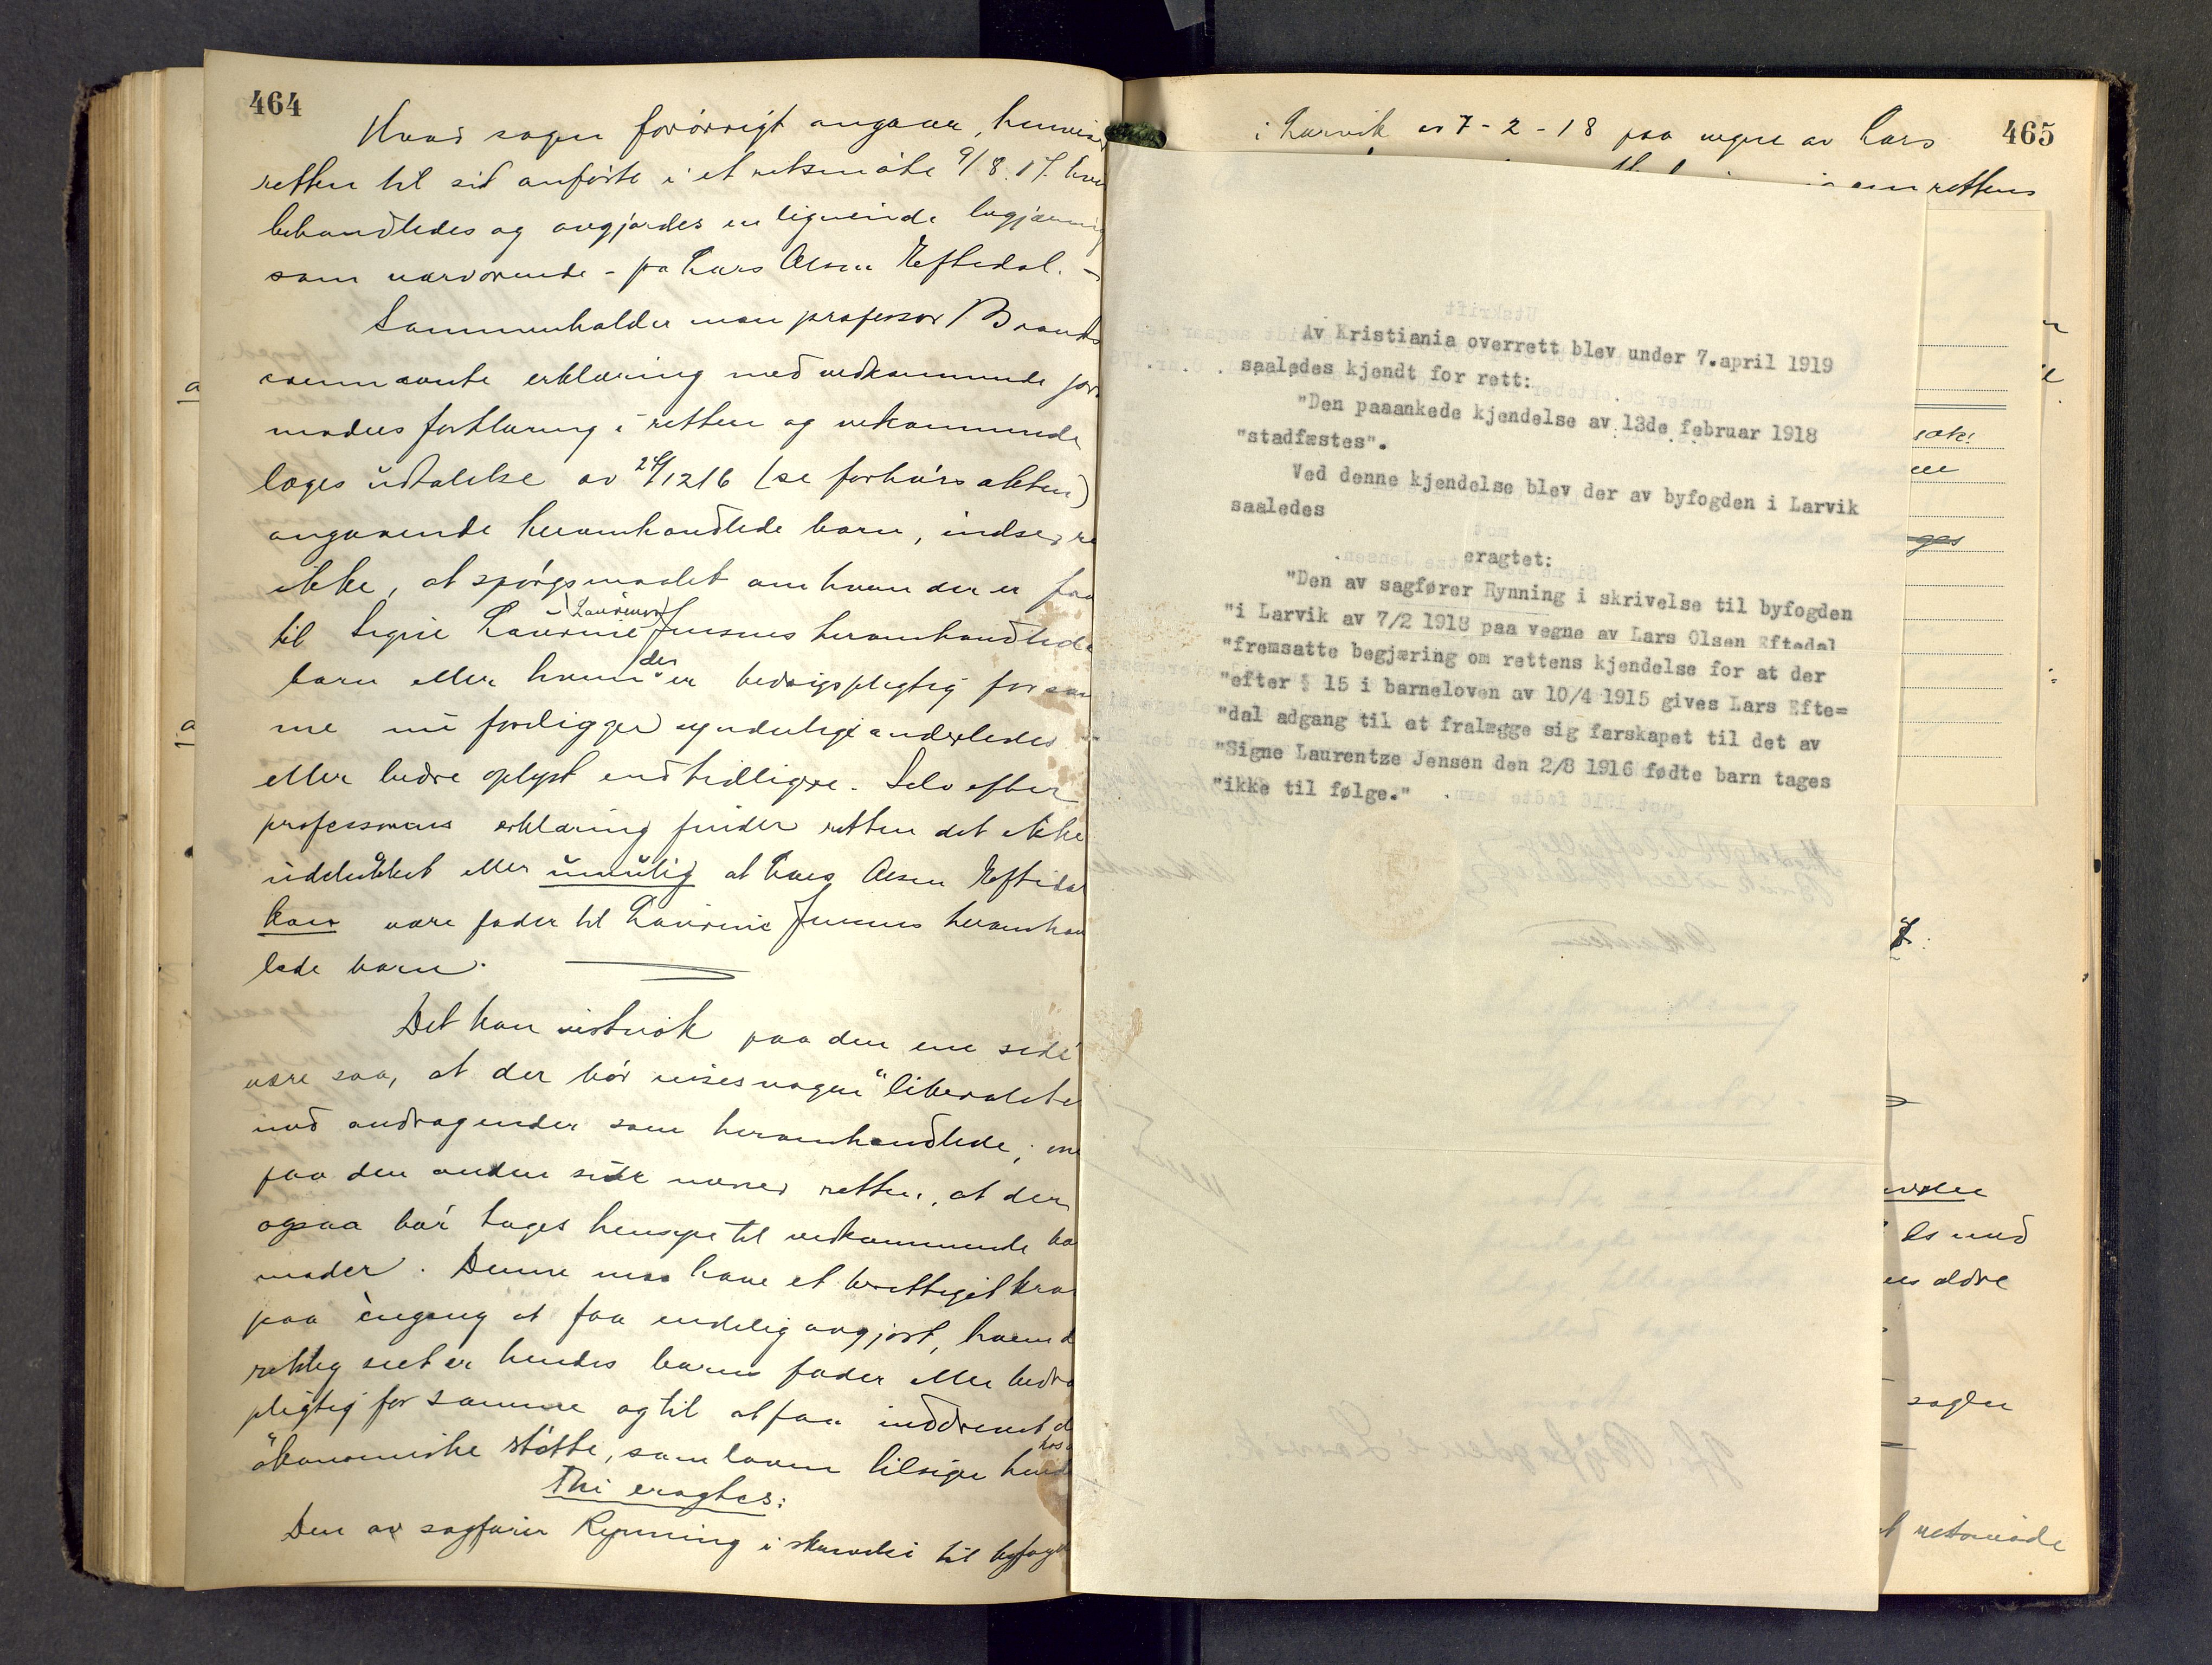 464
Hvad sagen forøvrigt angaar, henviser
retten til sit anførte i et retsmøte 9/8.17. hvor
behandledes og avgjordes en lignende begjæring
som nærværende - fra Lars Olsen Eftedal. -
Sammenholder man professor Brandts
ovennævnte erklæring med vedkommende jor
moders forklaring i retten og vekommende
læges udtalelse av 29/1216 (se forhørs akten)
angaaende heromhandlede barn, indser re
ikke, at spørgsmaalet om hvem der er fa
til Signe Laurine (Laurense) Jensens heromhandlede
barn eller hvem der er bedragspligtig for sam
me nu foreligger synderlige anderledes
eller bedre oplyst end tidligere. Selv efter
professorens erklæring finder retten det ikke
udelukket eller umulig at Lars Olsen Eftedal
kan være fader til Laurine Jensens heromhan
lede barn.
Det kan vistnok paa den ene side
være saa, at der bør vises nogen "liberalite
mod andragender som heromhandlede, me
paa den anden side mener retten, at der
ogsaa bør tages hensyn til vedkommende ba
moder. Denne maa have et berettiget kra
paa engang at faa endelig avgjort, hvem d
rettlig seet er hendes barns fader eller bedra
pligtig for samme og til at faa inddrevet d
økonomiske støtte, som loven tilsiger hende
Thi eragtes:
Den av sagfører Rynning i skrivelse til byfogd
465
i Larvik av 7-2-18 paa vegne av Lars
om rettens
Av Kristiania overrett blev under 7.april 1919
saaledes kjendt for rett:
"Den paaankede kjendelse av 13de februar 1918
"stadfæstes".
Ved denne kjendelse blev der av byfogden i Larvik
saaledes
eragtet:
"Den av sagfører Rynning i skrivelse til byfogden
"i Larvik av 7/2 1918 paa vegne av Lars Olsen Eftedal
"fremsatte begjæring om rettens kjendelse for at der
"efter § 15 i barneloven av 10/4 1915 gives Lars Efte=
"dal adgang til et fralægge sig farskapet til det av
"Signe Laurentze Jensen den 2/8 1916 fødte barn tages
"ikke til følge."
es ældre
sagen
retsmøde